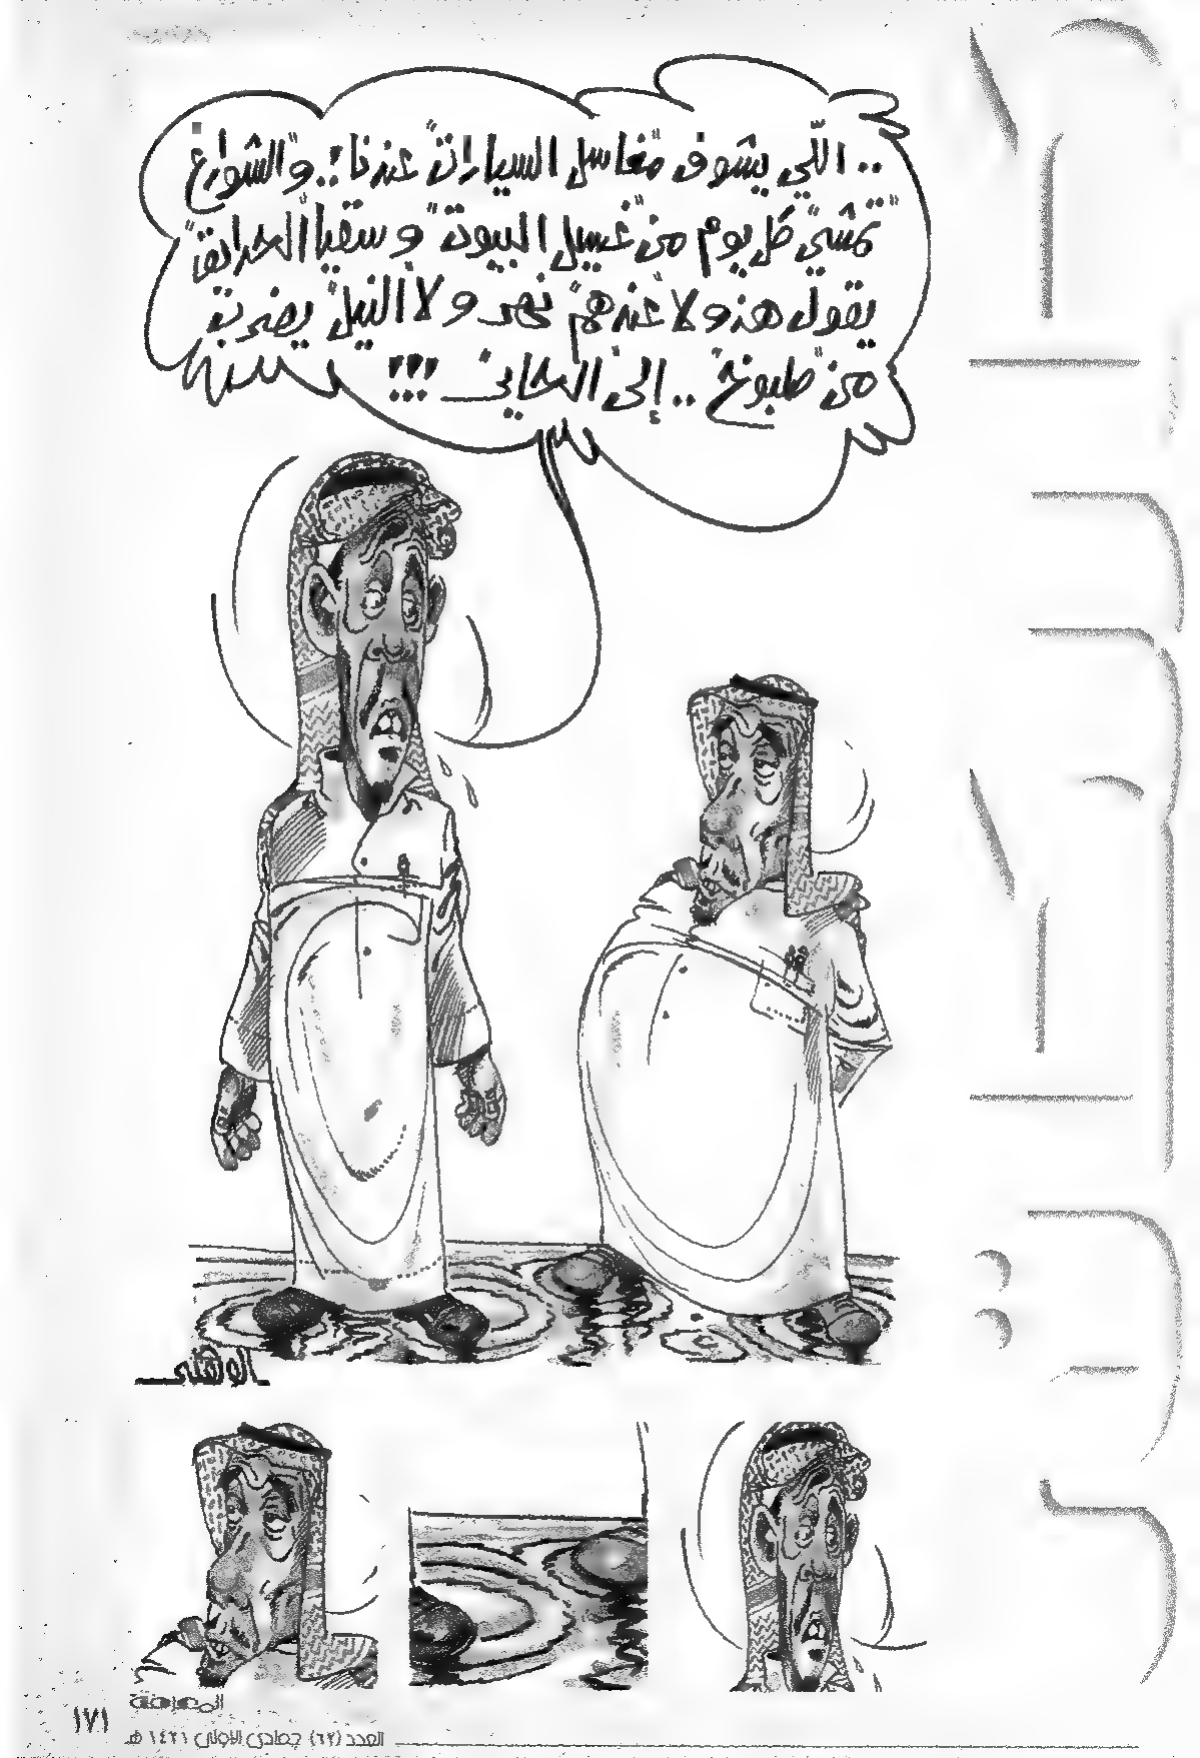 .. اللّي يشوف مغاسل السيارات عندنا !.. والشوارع
تمشي كل يوم من غسيل البيوت وسقيا الحدايق
يقول هذولا عندهم نهر ولا النيل يضرب
من طبونخ .. إلى الحاير !!!
الوهيبي
المعرفة
العدد (٦٢) جمادى الأولى ١٤٢١ هـ
١٧١